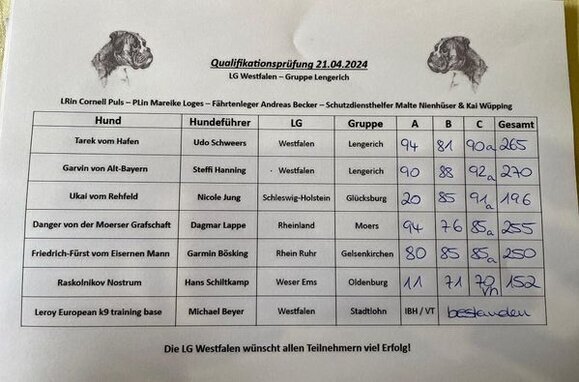 Qualifikationsprüfung 21.04.2024
LG Westfalen – Gruppe Lengerich
LRin Cornell Puls – PLin Mareike Loges – Fährtenleger Andreas Becker – Schutzdiensthelfer Malte Nienhüser & Kai Wüpping
Hund Hundeführer LG Gruppe A B C Gesamt
Tarek vom Hafen Udo Schweers Westfalen Lengerich 94 81 90a 265
Garvin von Alt-Bayern Steffi Hanning Westfalen Lengerich 90 88 92a 270
Ukai vom Rehfeld Nicole Jung Schleswig-Holstein Glücksburg 20 85 91a 196
Danger von der Moerser Grafschaft Dagmar Lappe Rheinland Moers 94 76 85a 255
Friedrich-Fürst vom Eisernen Mann Garmin Bösking Rhein Ruhr Gelsenkirchen 80 85 85a 250
Raskolnikov Nostrum Hans Schiltkamp Weser Ems Oldenburg 11 71 70vh 152
Leroy European k9 training base Michael Beyer Westfalen Stadtlohn IBH / VT bestanden
Die LG Westfalen wünscht allen Teilnehmern viel Erfolg!